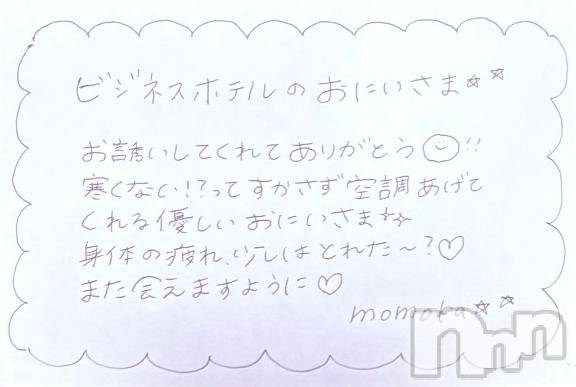 ビジネスホテルのおにいさま☆☆
お誘いしてくれてありがとう!!
寒くない!?ってすかさず空調あげて
くれる優しいおにいさま☆☆
身体の疲れ、少しはとれた〜?♡
また会えますように♡
momoka☆☆
nnn